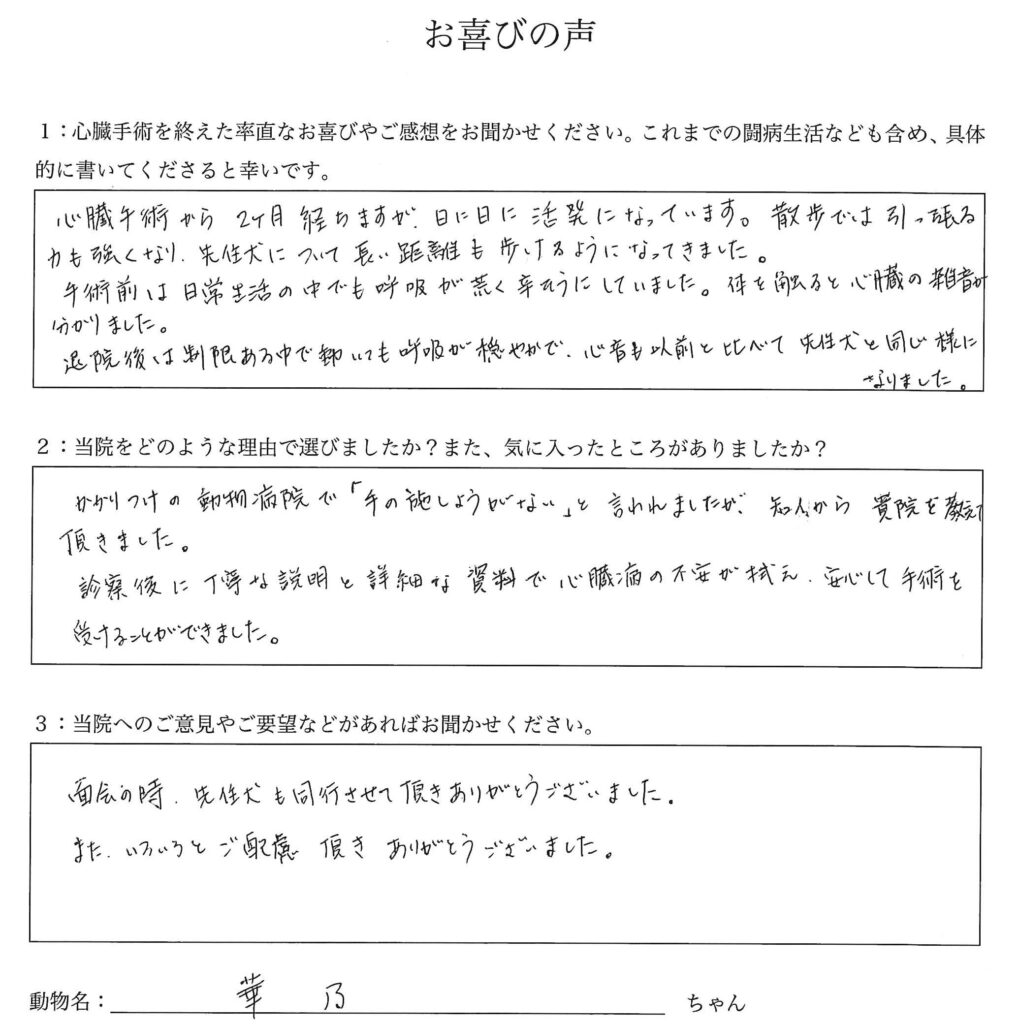 お喜びの声
1：心臓手術を終えた率直なお喜びやご感想をお聞かせください。これまでの闘病生活なども含め、具体
的に書いてくださると幸いです。
心臓手術から 2ヶ月 経ちますが、日に日に 活発になっています。散歩では 引っ張る
力も強くなり、先住犬について 長い距離も 歩けるようになってきました。
手術前は 日常生活の中でも呼吸が荒く 辛そうにしていました。体を触ると心臓の雑音が
分かりました。
退院後は制限ある中で動いても呼吸が穏やかで、心音も以前と比べて 先住犬と同じ様に
なりました。
2：当院をどのような理由で選びましたか？また、気に入ったところがありましたか？
かかりつけの 動物病院で「手の施しようがない」と 言われましたが、知人から 貴院を教えて
頂きました。
診察後に 丁寧な説明と詳細な 資料で 心臓病の不安が拭え、安心して手術を
受けることができました。
3：当院へのご意見やご要望などがあればお聞かせください。
面会の時、先住犬も同行させて頂きありがとうございました。
また、いろいろと ご配慮 頂き ありがとうございました。
動物名： 華 乃 ちゃん